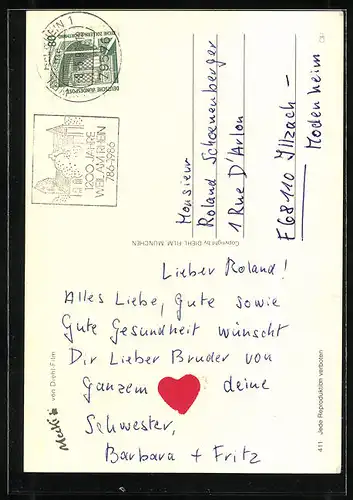 Lieber Roland!
Alles Liebe, Gute sowie
Gute Gesundheit wünscht
Dir Lieber Bruder von
ganzem ❤ deine
Schwester,
Barbara + Fritz
Monsieur
Roland Schoenenberger
1 Rue D'Arlon
F68110 Illzach –
Modenheim
Copyright by DIEHL-FILM MÜNCHEN
Mecki von Diehl-Film
411 Jede Reproduktion verboten
1200 JAHRE
WEIL AM RHEIN
786-1986
80
DEUTSCHE BUNDESPOST